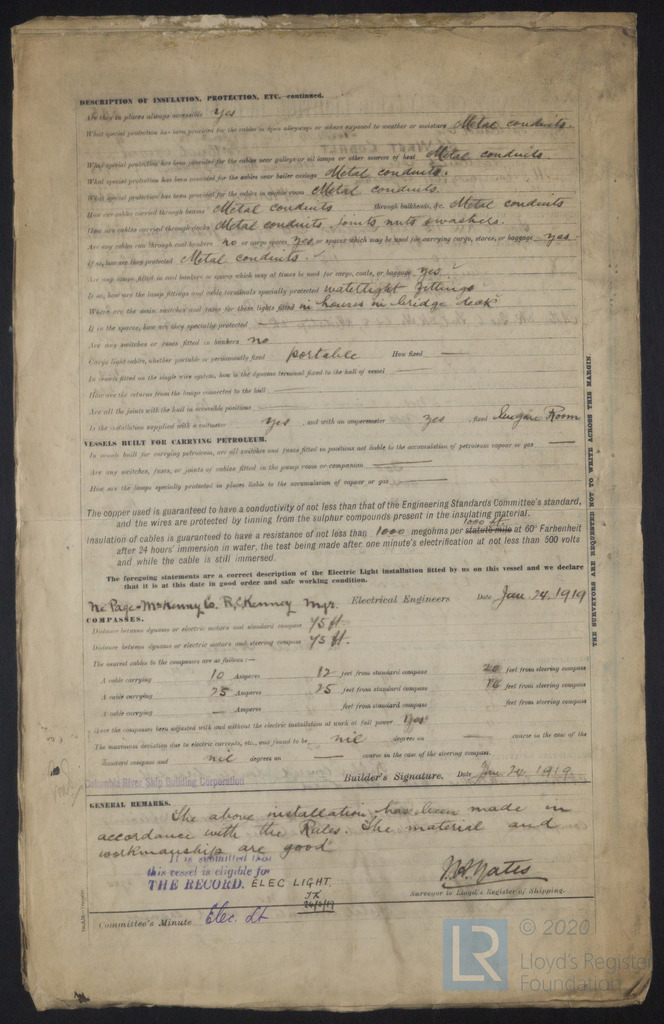 DESCRIPTION OF INSULATION, PROTECTION, ETC.—continued.
Are they in places always accessible Yes
What special protection has been provided for the cables in open alleyways or where exposed to weather or moisture Metal conduits.
What special protection has been provided for the cables near galleys or oil lamps or other sources of heat Metal conduits.
What special protection has been provided for the cables near boiler casings Metal conduits.
What special protection has been provided for the cables in engine room Metal conduits.
How are cables carried through beams Metal conduits through bulkheads, &c. Metal conduits
How are cables carried through decks Metal conduits, joints nuts & washers.
Are any cables run through coal bunkers no or cargo spaces yes or spaces which may be used for carrying cargo, stores, or baggage yes
If so, how are they protected Metal conduits.
Are any lamps fitted in coal bunkers or spaces which may at times be used for cargo, coals, or baggage yes.
If so, how are the lamp fittings and cable terminals specially protected watertight fittings
Where are the main switches and fuses for these lights fitted in houses in bridge deck
If in the spaces, how are they specially protected —
Are any switches or fuses fitted in bunkers no
Cargo light cables, whether portable or permanently fixed portable How fixed —
In vessels fitted on the single wire system, how is the dynamo terminal fixed to the hull of vessel —
How are the returns from the lamps connected to the hull —
Are all the joints with the hull in accessible positions —
Is the installation supplied with a voltmeter yes, and with an amperemeter yes, fixed Engine Room
VESSELS BUILT FOR CARRYING PETROLEUM.
In vessels built for carrying petroleum, are all switches and fuses fitted in positions not liable to the accumulation of petroleum vapour or gas —
Are any switches, fuses, or joints of cables fitted in the pump room or companion —
How are the lamps specially protected in places liable to the accumulation of vapour or gas —
The copper used is guaranteed to have a conductivity of not less than that of the Engineering Standards Committee's standard,
and the wires are protected by tinning from the sulphur compounds present in the insulating material.
1000 ft.
Insulation of cables is guaranteed to have a resistance of not less than 1000 megohms per statute mile at 60° Farhenheit
after 24 hours' immersion in water, the test being made after one minute's electrification at not less than 500 volts
and while the cable is still immersed.
The foregoing statements are a correct description of the Electric Light installation fitted by us on this vessel and we declare
that it is at this date in good order and safe working condition.
Ne Page-McKenny Co. McKenney Mgr. Electrical Engineers Date Jan. 24, 1919
COMPASSES.
Distance between dynamo or electric motors and standard compass 75 ft.
Distance between dynamo or electric motors and steering compass 75 ft.
The nearest cables to the compasses are as follows:—
A cable carrying 10 Amperes 12 feet from standard compass 20 feet from steering compass
A cable carrying 75 Amperes 25 feet from standard compass feet from steering compass
A cable carrying — Amperes feet from standard compass feet from steering compass
Have the compasses been adjusted with and without the electric installation at work at full power Yes
The maximum deviation due to electric currents, etc., was found to be nil degrees on — course in the case of the
standard compass and nil degrees on — course in the case of the steering compass.
Columbia River Ship Building Corporation
Builder's Signature. Date Jan. 24, 1919
GENERAL REMARKS.
The above installation has been made in
accordance with the Rules. The material and
workmanship are good
It is submitted that
this vessel is eligible for
THE RECORD. ELEC LIGHT.
Surveyor to Lloyd's Register of Shipping.
Committee's Minute Elec. Lt
THE SURVEYORS ARE REQUESTED NOT TO WRITE ACROSS THIS MARGIN.
LR
© 2020
Lloyd's Register
Foundation